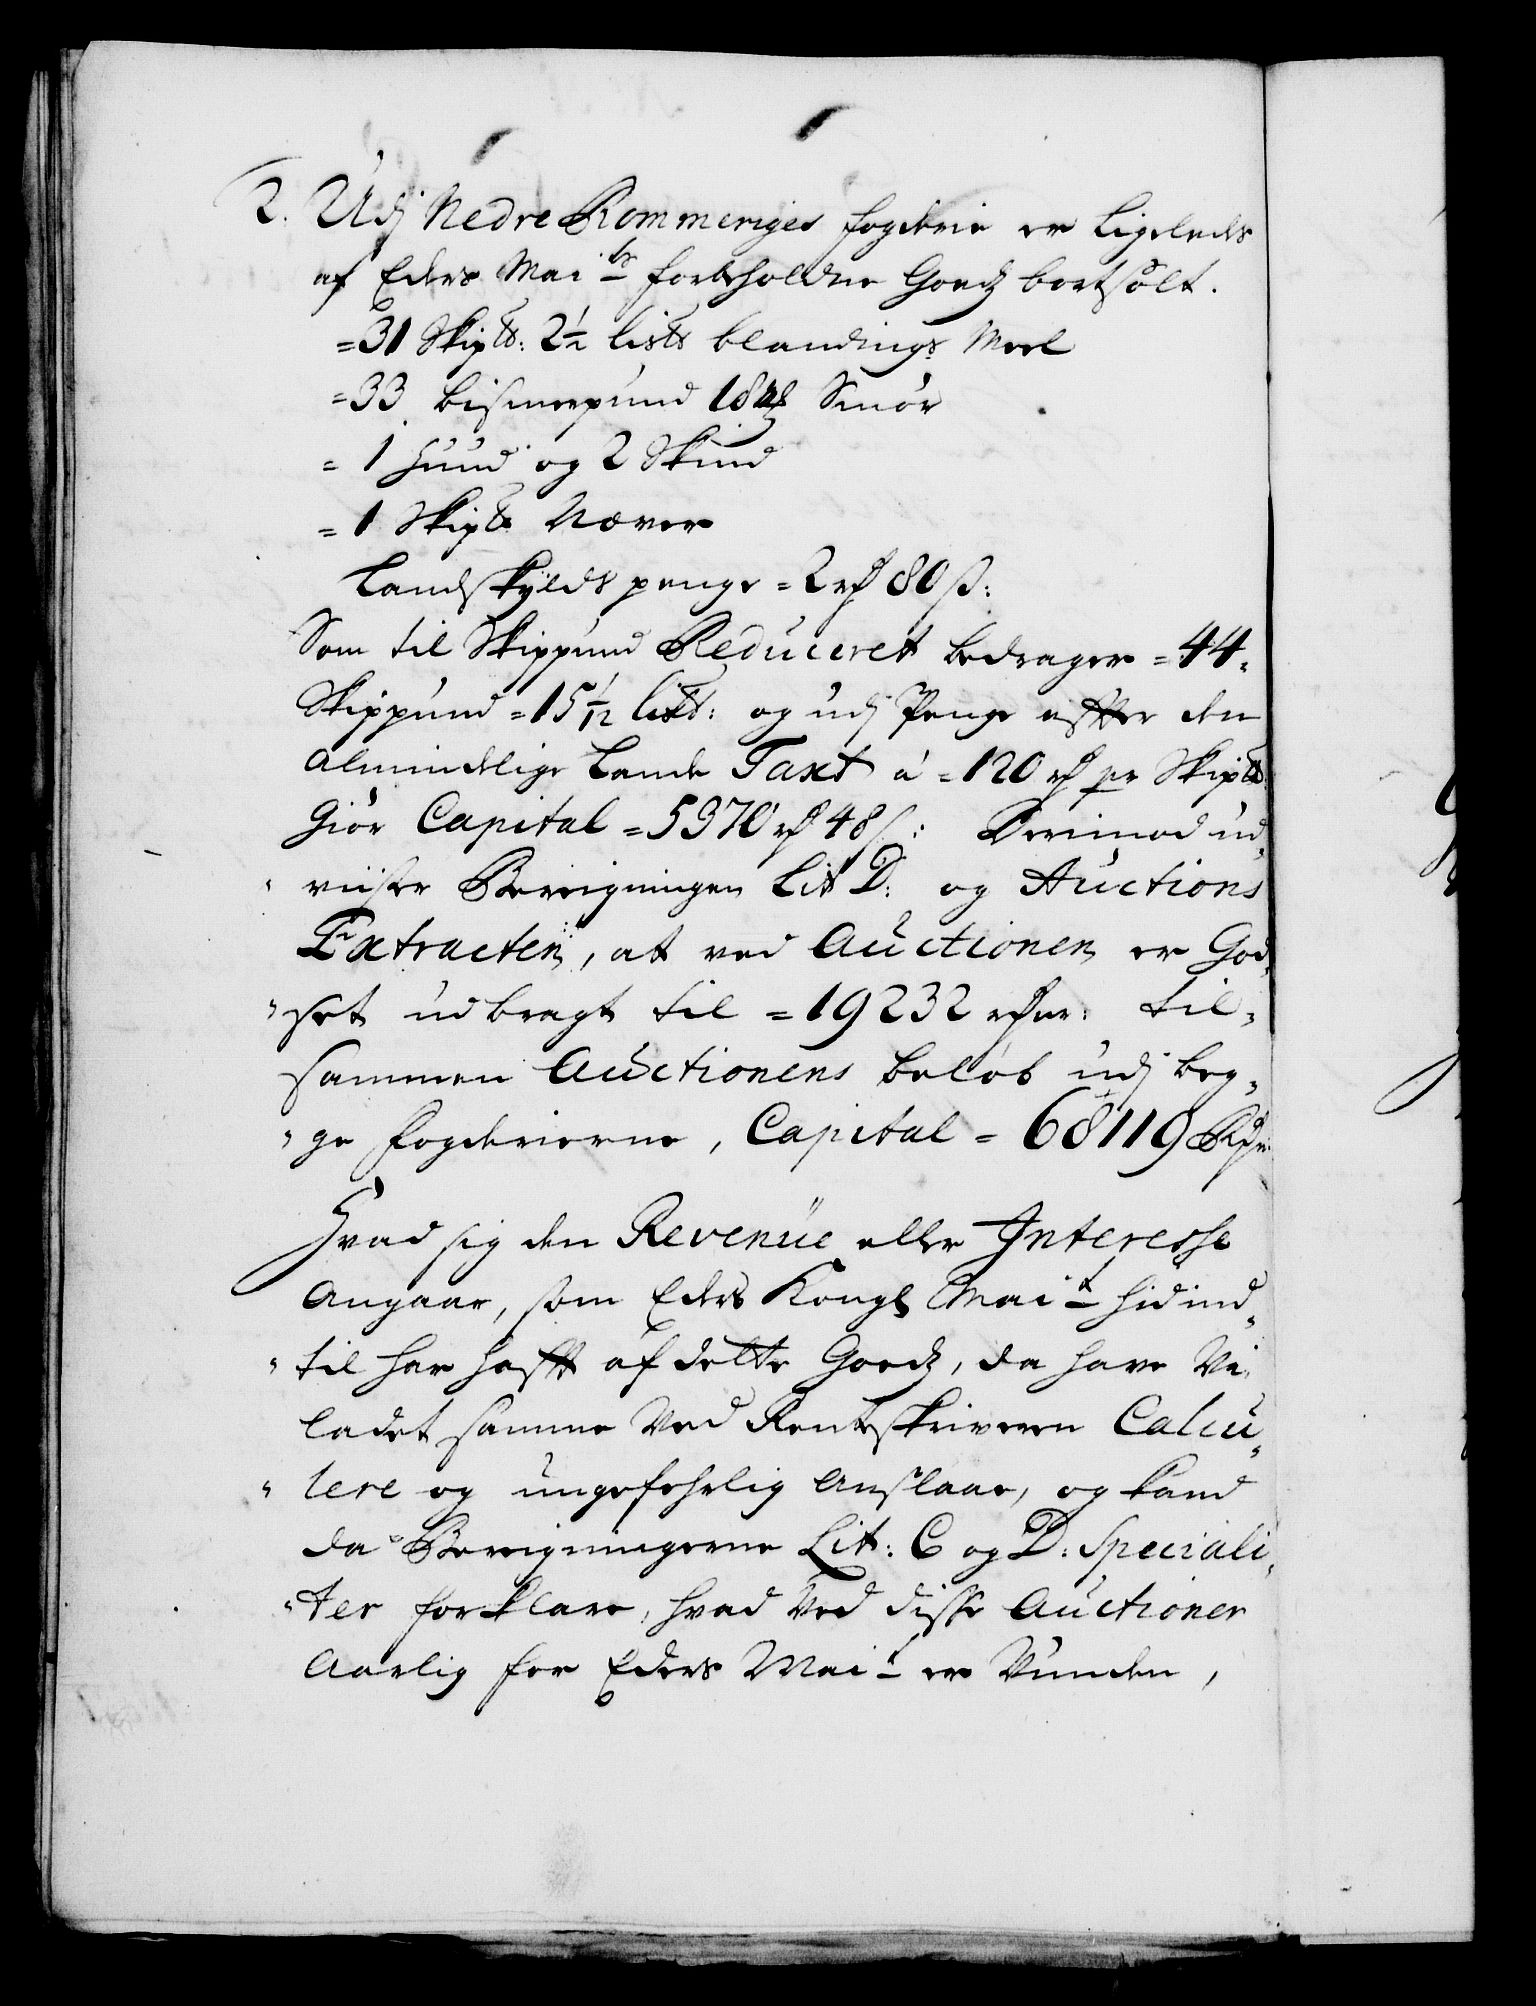 2. Udj Nedre Rommeriges fogderie er Ligeleds
af Eders Mai<sup>ts</sup> forbeholdne Goedz bortsolt.
=31 Skip℔: 2½ Lis℔ blandings Meel
=33 bismerpund 18 ℔ Smör
= 1 Huud og 2 Skind
= 1 Skip℔ Næver
Landskylds penge =2 rd 80 ß:
Som til Skippund Reduceret bedrager =44
Skippund =15 1/12 Lis℔: og udj Penge effter den
Almindelige Lands Taxt á =120 rd pr Skip℔
Giör Capital =5370 rd 48 ß: Derimod ud
" viiser Beregningen Lit D: og Auctions
Extracten, at ved Auctionen er God
" set udbragt til =19232 rdr: til-
sammen Auctionens belöb udj beg-
" ge fogderierne, Capital = 68119 Rdr
Hvad sig den Revenüe eller Interesse
Angaar, som Eders Kongl Mai<sup>t</sup> hidind-
" til har hafft af dette Goedz, da have Vi
ladet samme Ved Rentskriveren Calcu-
" lere og ungefehrlig Anslaae, og kand
da Beregningerne Lit: C og D: Speciali-
" ter forklare, hvad Ved disse Auctioner
Aarlig for Eders Mai<sup>t</sup> er Vunden,